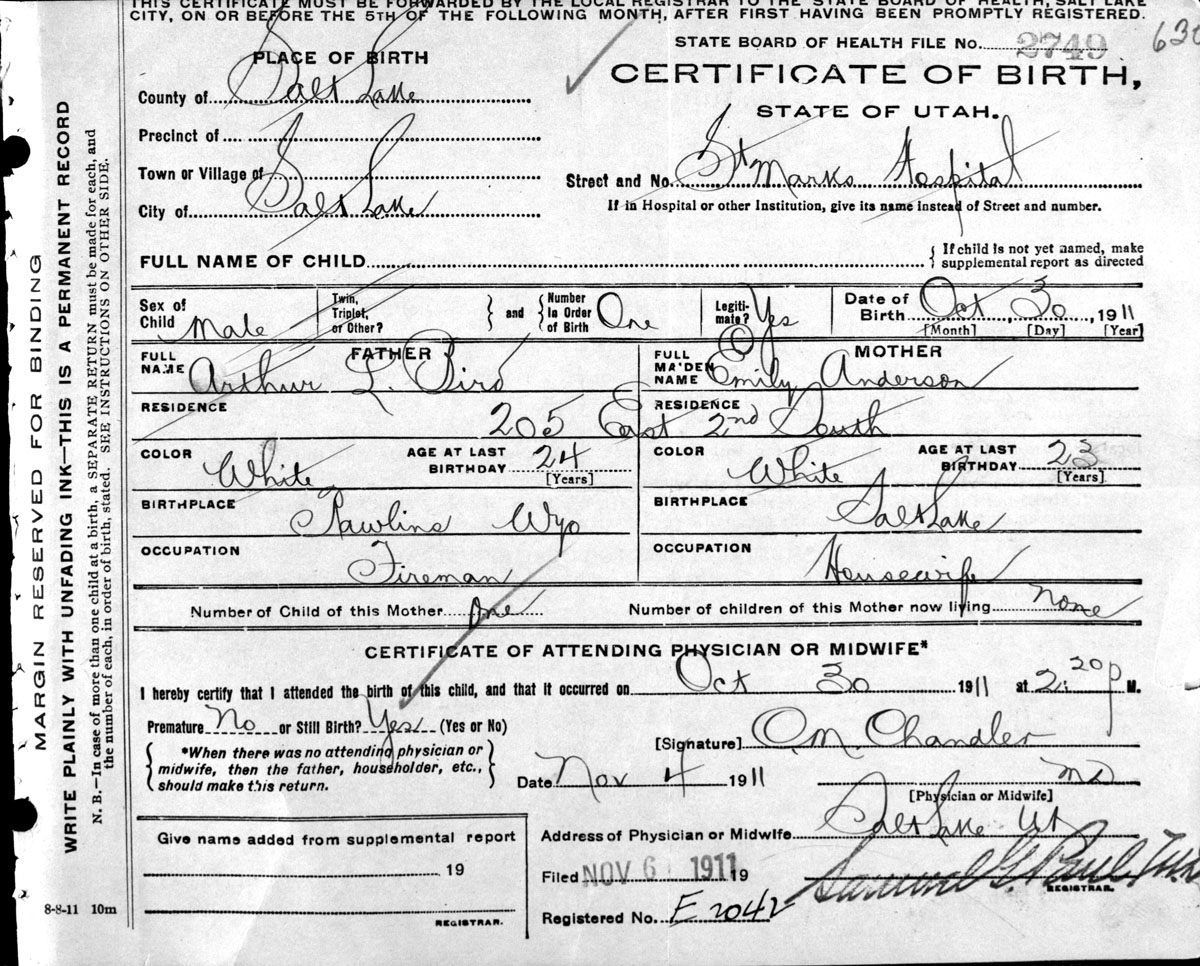 THIS CERTIFICATE MUST BE FORWARDED BY THE LOCAL REGISTRAR TO THE STATE BOARD OF HEALTH, SALT LAKE
CITY, ON OR BEFORE THE 5TH OF THE FOLLOWING MONTH, AFTER FIRST HAVING BEEN PROMPTLY REGISTERED.
STATE BOARD OF HEALTH FILE No. 2749
PLACE OF BIRTH
CERTIFICATE OF BIRTH,
County of Salt Lake
STATE OF UTAH.
Precinct of
Town or Village of
Street and No. St Marks Hospital
City of Salt Lake
If in Hospital or other Institution, give its name instead of Street and number.
FULL NAME OF CHILD
{ If child is not yet named, make
supplemental report as directed
Sex of Child Male
Twin, Triplet, or Other? } and { Number In Order of Birth One
Legiti- mate? Yes
Date of Birth Oct 30, 1911
[Month] [Day] [Year]
FATHER
FULL NAME Arthur L. Bird
MOTHER
FULL MAIDEN NAME Emily Anderson
RESIDENCE
RESIDENCE
205 East 2nd South
COLOR White AGE AT LAST BIRTHDAY 24 [Years]
COLOR White AGE AT LAST BIRTHDAY 23 [Years]
BIRTHPLACE Rawlins Wyo
BIRTHPLACE Salt Lake
OCCUPATION Fireman
OCCUPATION Housewife
Number of Child of this Mother One
Number of children of this Mother now living none
CERTIFICATE OF ATTENDING PHYSICIAN OR MIDWIFE*
I hereby certify that I attended the birth of this child, and that it occurred on Oct 30 1911 at 2:20 P M.
Premature No or Still Birth? Yes (Yes or No)
{ *When there was no attending physician or
midwife, then the father, householder, etc.,
should make this return. }
[Signature] O.M. Chandler
Date Nov 4 1911
MD
[Physician or Midwife]
Address of Physician or Midwife Salt Lake Ut
Give name added from supplemental report
19
REGISTRAR.
Filed NOV 6 1911 19
Samuel G. Paul
REGISTRAR.
Registered No. E 2042
8-8-11 10m
MARGIN RESERVED FOR BINDING
WRITE PLAINLY WITH UNFADING INK—THIS IS A PERMANENT RECORD
N. B.—In case of more than one child at a birth, a SEPARATE RETURN must be made for each, and
the number of each, in order of birth, stated. SEE INSTRUCTIONS ON OTHER SIDE.